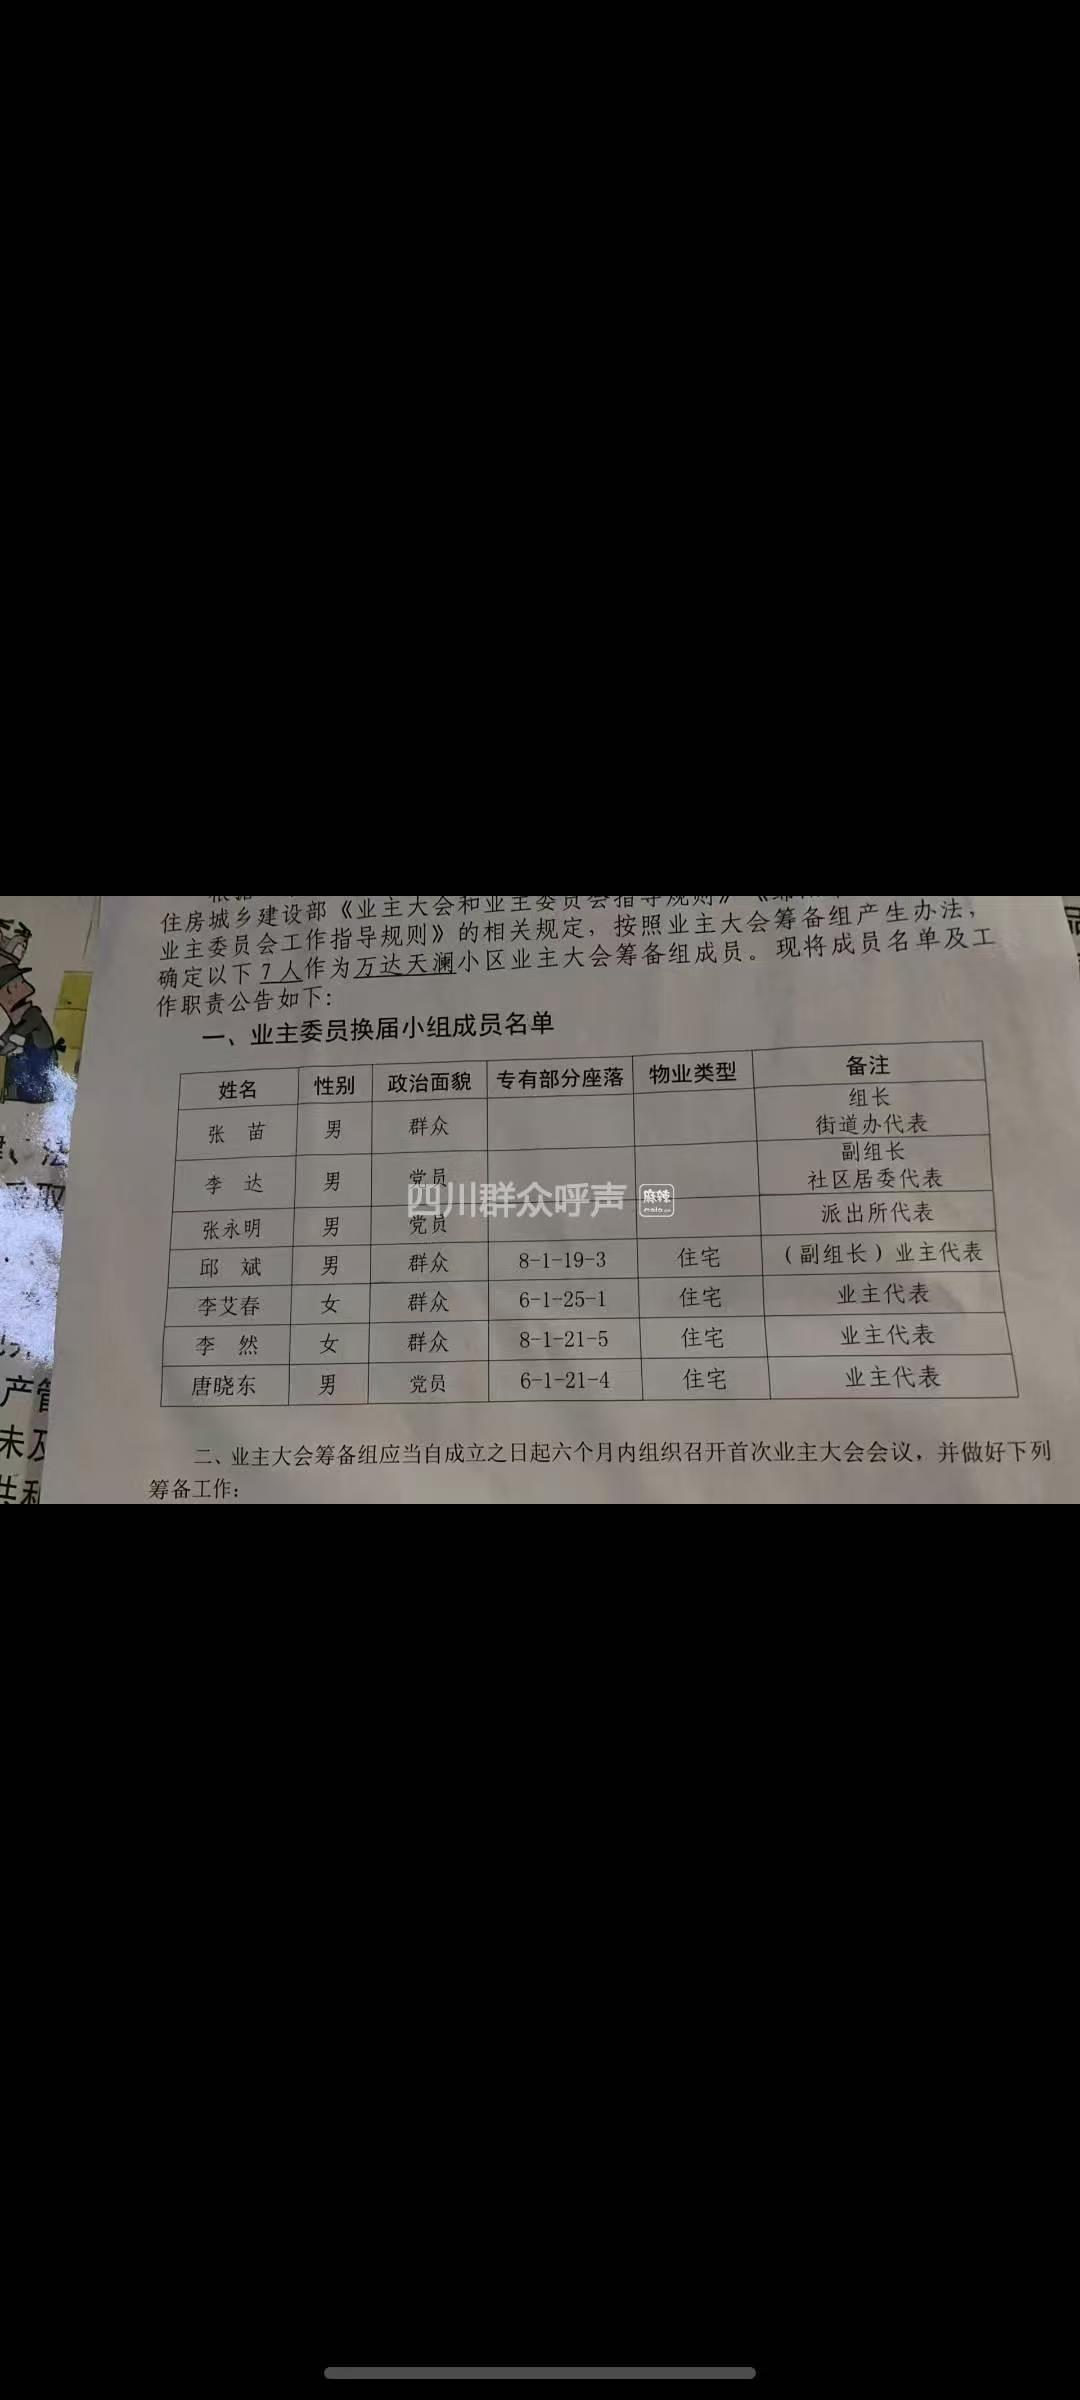 住房城乡建设部《业主大会和业主委员会指导规则》
业主委员会工作指导规则》的相关规定，按照业主大会筹备组产生办法，
确定以下7人作为万达天澜小区业主大会筹备组成员。现将成员名单及工
作职责公告如下：
一、业主委员换届小组成员名单
姓名 性别 政治面貌 专有部分座落 物业类型 备注
张 苗 男 群众 组长 街道办代表
李 达 男 党员 副组长 社区居委代表
四川群众呼声 麻辣
张永明 男 党员 派出所代表
邱 斌 男 群众 8-1-19-3 住宅 （副组长）业主代表
李艾春 女 群众 6-1-25-1 住宅 业主代表
李 然 女 群众 8-1-21-5 住宅 业主代表
唐晓东 男 党员 6-1-21-4 住宅 业主代表
二、业主大会筹备组应当自成立之日起六个月内组织召开首次业主大会会议，并做好下列
筹备工作：
法
取
产管
未及